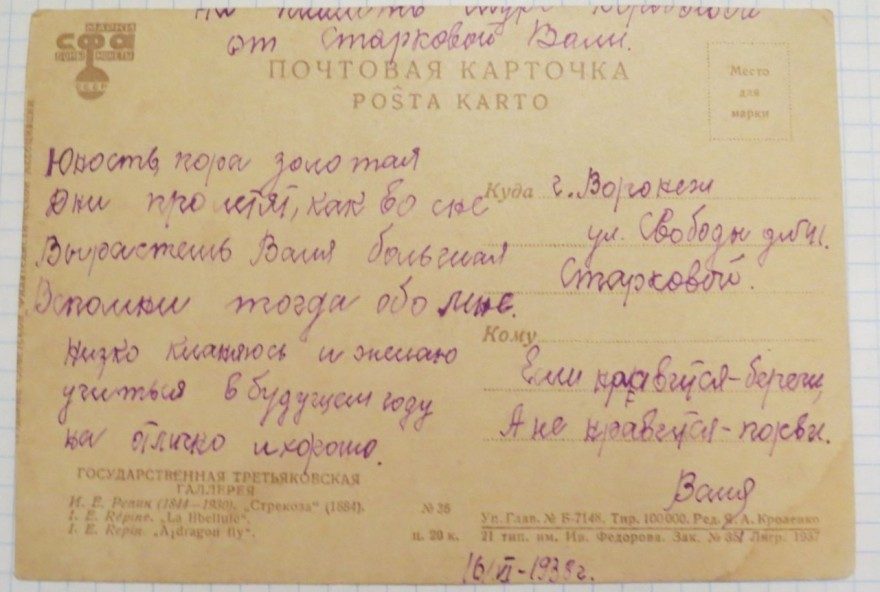 На память
от Старковой Вали.
МАРКИ
СФА
БОНЫ МОНЕТЫ
СССР
ПОЧТОВАЯ КАРТОЧКА
POŜTA KARTO
Место
для
марки
Юность, пора золотая
Дни пролетят, как во сне
Вырастешь Валя большая
Вспомни тогда обо мне.
Низко кланяюсь и желаю
учиться в будущем году
на отлично и хорошо.
Куда г. Воронеж
ул. Свободы
Старковой.
Кому
Если нравится-береги,
А не нравится-порви.
Валя
ГОСУДАРСТВЕННАЯ ТРЕТЬЯКОВСКАЯ
ГАЛЛЕРЕЯ
И. Е. Репин (1844—1930). „Стрекоза“ (1884).
I. E. Répine. „La libellule“.
I. E. Repin. „A dragon fly“.
№ 35
ц. 20 к.
Уп. Глав. № Б-7148. Тир. 100 000. Ред. Я. А. Кроленко
21 тип. им. Ив. Федорова. Зак. № 351 Лнгр. 1937
16/VI-1938г.